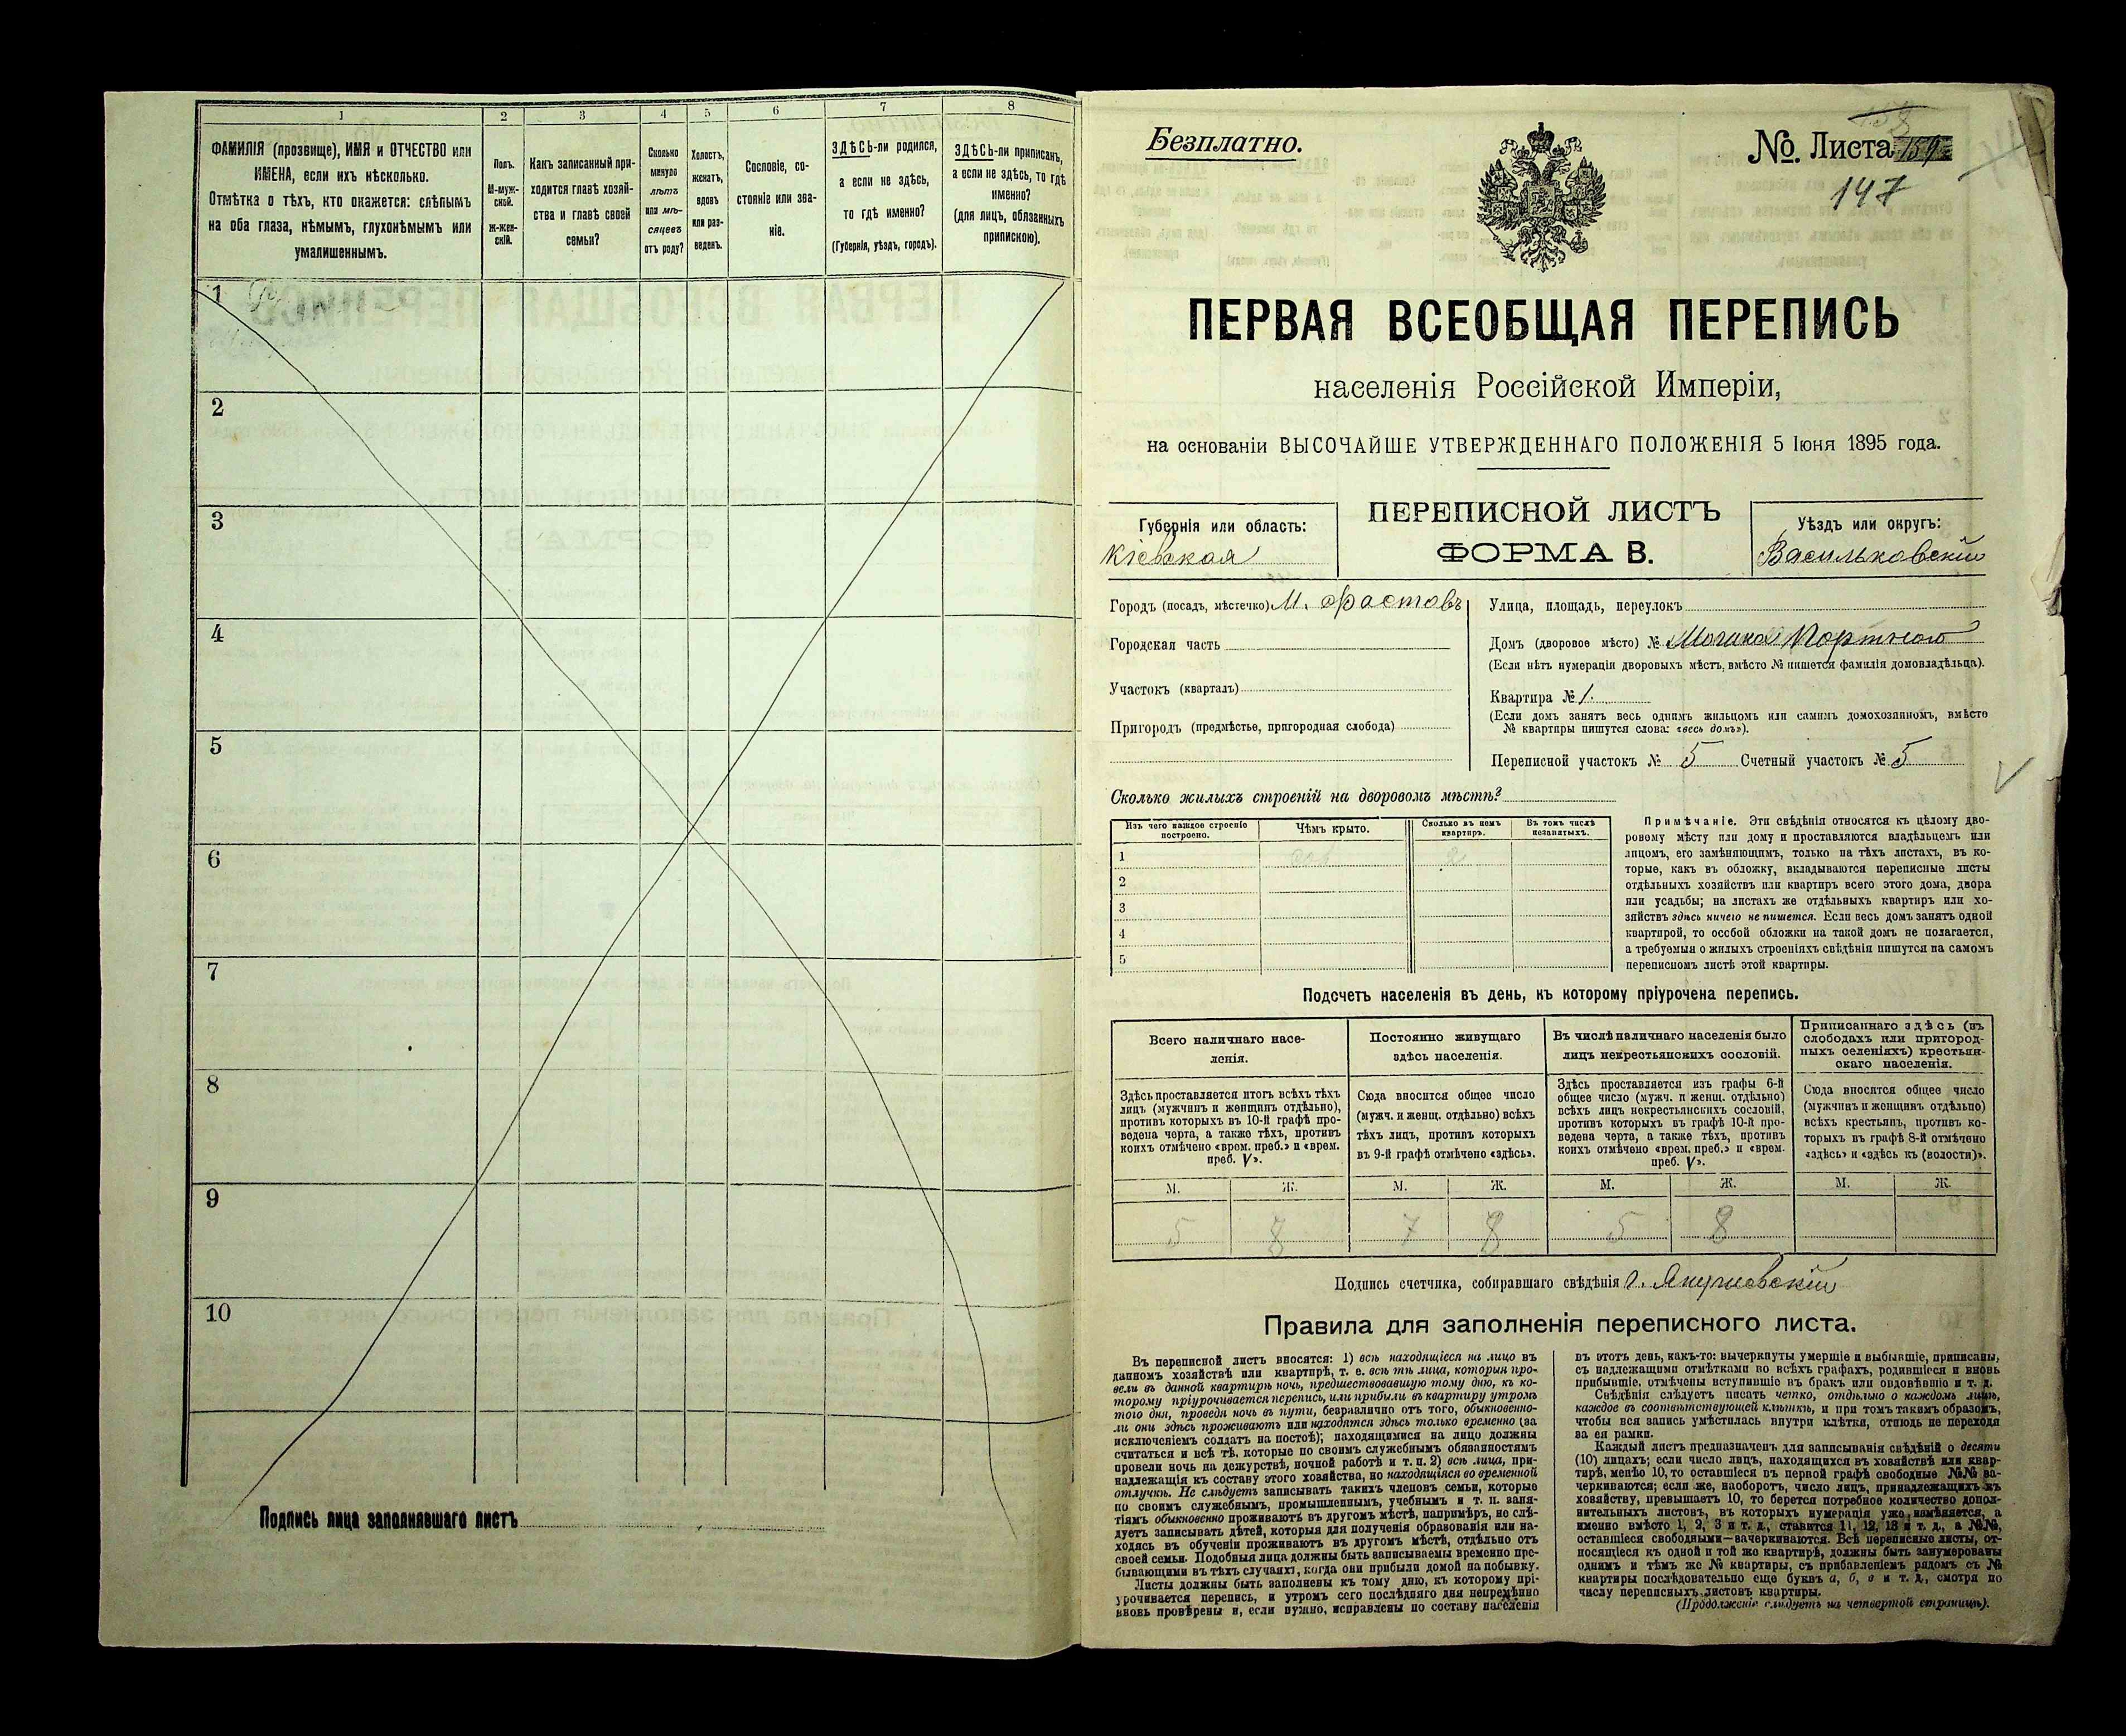 1
2
3
4
5
6
7
8
ФАМИЛІЯ (прозвище), ИМЯ и ОТЧЕСТВО или
ИМЕНА, если ихъ нѣсколько.
Отмѣтка о тѣхъ, кто окажется: слѣпымъ
на оба глаза, нѣмымъ, глухонѣмымъ или
умалишеннымъ.
Полъ.
М-муж-
ской.
ж-жен-
скій.
Какъ записанный при-
ходится главѣ хозяй-
ства и главѣ своей
семьи?
Сколько
минуло
лѣтъ
или мѣ-
сяцевъ
отъ роду?
Холостъ,
женатъ,
вдовъ
или раз-
веденъ.
Сословіе, со-
стояніе или зва-
ніе.
ЗДѢСЬ-ли родился,
а если не здѣсь,
то гдѣ именно?
(Губернія, уѣздъ, городъ).
ЗДѢСЬ-ли приписанъ,
а если не здѣсь, то гдѣ
именно?
(для лицъ, обязанныхъ
припискою).
1
2
3
4
5
6
7
8
9
10
Подпись лица заполнявшаго листъ
Безплатно.
№. Листа 159
147
ПЕРВАЯ ВСЕОБЩАЯ ПЕРЕПИСЬ
населенія Россійской Имперіи,
на основаніи ВЫСОЧАЙШЕ УТВЕРЖДЕННАГО ПОЛОЖЕНІЯ 5 Іюня 1895 года.
Губернія или область:
Кіевская
ПЕРЕПИСНОЙ ЛИСТЪ
ФОРМА В.
Уѣздъ или округъ:
Васильковскій
Городъ (посадъ, мѣстечко) М. Фастовъ
Городская часть
Участокъ (кварталъ)
Пригородъ (предмѣстье, пригородная слобода)
Улица, площадь, переулокъ
Домъ (дворовое мѣсто) № Портного
(Если нѣтъ нумераціи дворовыхъ мѣстъ, вмѣсто № пишется фамилія домовладѣльца).
Квартира № 1.
(Если домъ занятъ весь однимъ жильцомъ или самимъ домохозяиномъ, вмѣсто
№ квартиры пишутся слова: «весь домъ»).
Переписной участокъ № 5 Счетный участокъ № 5
Сколько жилыхъ строеній на дворовомъ мѣстѣ?
Изъ чего каждое строеніе
построено.
Чѣмъ крыто.
Сколько въ немъ
квартиръ.
Въ томъ числѣ
незанятыхъ.
1 2
2
3
4
5
Примѣчаніе. Эти свѣдѣнія относятся къ цѣлому дво-
ровому мѣсту или дому и проставляются владѣльцемъ или
лицомъ, его замѣняющимъ, только на тѣхъ листахъ, въ ко-
торые, какъ въ обложку, вкладываются переписные листы
отдѣльныхъ хозяйствъ или квартиръ всего этого дома, двора
или усадьбы; на листахъ же отдѣльныхъ квартиръ или хо-
зяйствъ здѣсь ничего не пишется. Если весь домъ занятъ одной
квартирой, то особой обложки на такой домъ не полагается,
а требуемыя о жилыхъ строеніяхъ свѣдѣнія пишутся на самомъ
переписномъ листѣ этой квартиры.
Подсчетъ населенія въ день, къ которому пріурочена перепись.
Всего наличнаго насе-
ленія.
Постоянно живущаго
здѣсь населенія.
Въ числѣ наличнаго населенія было
лицъ некрестьянскихъ сословій.
Приписаннаго здѣсь (въ
слободахъ или пригород-
ныхъ селеніяхъ) крестьян-
скаго населенія.
Здѣсь проставляется итогъ всѣхъ тѣхъ
лицъ (мужчинъ и женщинъ отдѣльно),
противъ которыхъ въ 10-й графѣ про-
ведена черта, а также тѣхъ, противъ
коихъ отмѣчено «врем. преб.» и «врем.
преб. V».
Сюда вносится общее число
(мужч. и женщ. отдѣльно) всѣхъ
тѣхъ лицъ, противъ которыхъ
въ 9-й графѣ отмѣчено «здѣсь».
Здѣсь проставляется изъ графы 6-й
общее число (мужч. и женщ. отдѣльно)
всѣхъ лицъ некрестьянскихъ сословій,
противъ которыхъ въ графѣ 10-й про-
ведена черта, а также тѣхъ, противъ
коихъ отмѣчено «врем. преб.» и «врем.
преб. V».
Сюда вносится общее число
(мужчинъ и женщинъ отдѣльно)
всѣхъ крестьянъ, противъ ко-
торыхъ въ графѣ 8-й отмѣчено
«здѣсь» и «здѣсь къ (волости)».
М. Ж. М. Ж. М. Ж. М. Ж.
5 8 7 8 5 8
Подпись счетчика, собиравшаго свѣдѣнія
Правила для заполненія переписного листа.
Въ переписной листъ вносятся: 1) всѣ находящіеся на лицо въ
данномъ хозяйствѣ или квартирѣ, т. е. всѣ тѣ лица, которыя про-
вели въ данной квартирѣ ночь, предшествовавшую тому дню, къ ко-
торому пріурочивается перепись, или прибыли въ квартиру утромъ
того дня, проведя ночь въ пути, безразлично отъ того, обыкновенно-
ли они здѣсь проживаютъ или находятся здѣсь только временно (за
исключеніемъ солдатъ на постоѣ); находящимися на лицо должны
считаться и всѣ тѣ, которые по своимъ служебнымъ обязанностямъ
провели ночь на дежурствѣ, ночной работѣ и т. п. 2) всѣ лица, при-
надлежащія къ составу этого хозяйства, но находящіяся во временной
отлучкѣ. Не слѣдуетъ записывать такихъ членовъ семьи, которые
по своимъ служебнымъ, промышленнымъ, учебнымъ и т. п. заня-
тіямъ обыкновенно проживаютъ въ другомъ мѣстѣ, напримѣръ, не слѣ-
дуетъ записывать дѣтей, которыя для полученія образованія или на-
ходясь въ обученіи проживаютъ въ другомъ мѣстѣ, отдѣльно отъ
своей семьи. Подобныя лица должны быть записываемы временно пре-
бывающими въ тѣхъ случаяхъ, когда они прибыли домой на побывку.
Листы должны быть заполнены къ тому дню, къ которому прі-
урочивается перепись, и утромъ сего послѣдняго дня непремѣнно
вновь провѣрены и, если нужно, исправлены по составу населенія
въ этотъ день, какъ-то: вычеркнуты умершіе и выбывшіе, приписаны,
съ надлежащими отмѣтками во всѣхъ графахъ, родившіеся и вновь
прибывшіе, отмѣчены вступившіе въ бракъ или овдовѣвшіе и т. д.
Свѣдѣнія слѣдуетъ писать четко, отдѣльно о каждомъ лицѣ,
каждое въ соотвѣтствующей клѣткѣ, и при томъ такимъ образомъ,
чтобы вся запись умѣстилась внутри клѣтки, отнюдь не переходя
за ея рамки.
Каждый листъ предназначенъ для записыванія свѣдѣній о десяти
(10) лицахъ; если число лицъ, находящихся въ хозяйствѣ или квар-
тирѣ, менѣе 10, то оставшіеся въ первой графѣ свободные №№ за-
черкиваются; если же, наоборотъ, число лицъ, принадлежащихъ къ
хозяйству, превышаетъ 10, то берется потребное количество допол-
нительныхъ листовъ, въ которыхъ нумерація уже измѣняется, а
именно вмѣсто 1, 2, 3 и т. д., ставится 11, 12, 13 и т. д., а №№,
оставшіеся свободными—зачеркиваются. Всѣ переписные листы, от-
носящіеся къ одной и той же квартирѣ, должны быть занумерованы
однимъ и тѣмъ же № квартиры, съ прибавленіемъ рядомъ съ №
квартиры послѣдовательно еще буквъ а, б, в и т. д., смотря по
числу переписныхъ листовъ квартиры.
(Продолженіе слѣдуетъ на четвертой страницѣ).